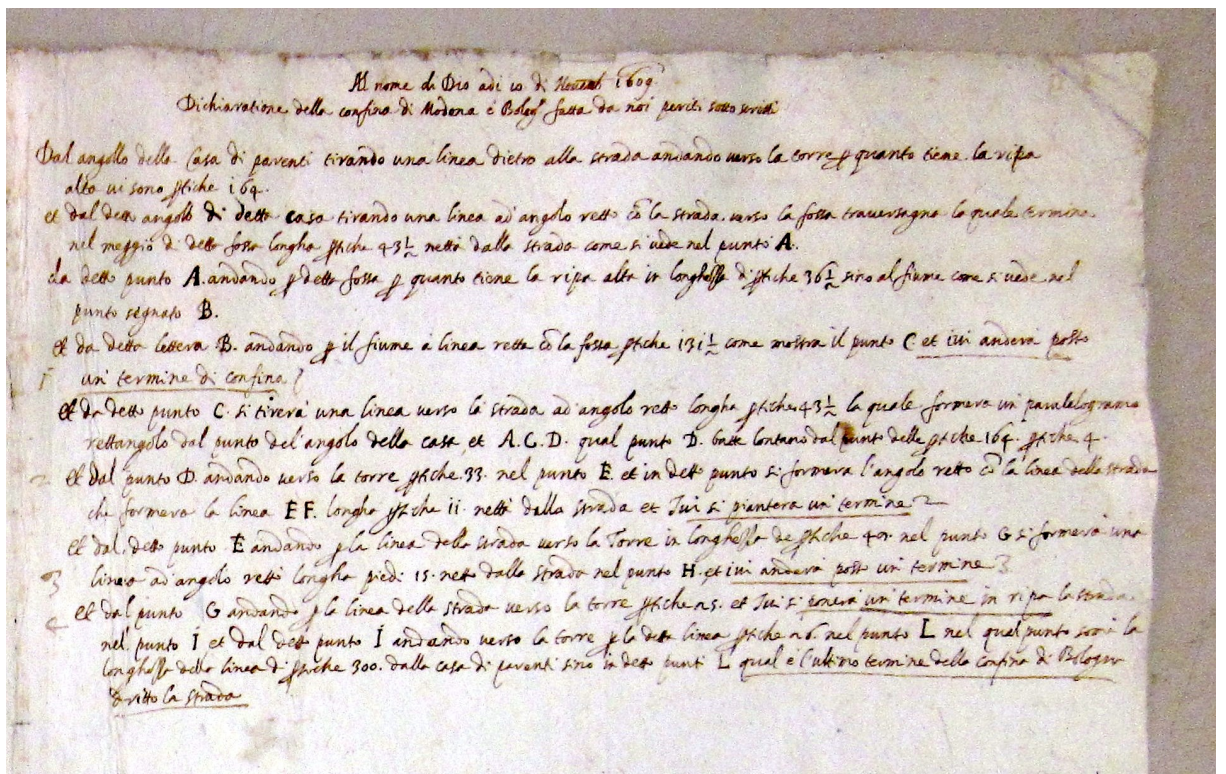 Al nome di Dio adi 10 di Novemb 1609
Dichiaratione della confina di Modona é Bologª fatta da noi periti sotto scritti
Dal angollo della Casa di parenti tirando una linea dietro alla strada andando verso la torre p quanto tiene la ripa
alta vi sono ptiche 164.
et dal detto angolo di detta casa tirando una linea ad angolo retto cō la strada verso la fossa traversagna la quale termina
nel meggio di detta fossa longha ptiche 43½ netta dalla strada come si vede nel punto A.
da detto punto A. andando p detta fossa p quanto tiene la ripa alta in longhessa di ptiche 36½ sino al fiume come si vede nel
punto segnato B.
et da detta lettera B. andando p il fiume á linea retta cō la fossa ptiche 131½ come mostra il punto C. et ivi anderá posto
1 un' termine di confina
et da detto punto C. si tirerá una linea verso la strada ad angolo retto longha ptiche 43½ la quale formera un paralelogramo
rettangolo dal punto del angolo della casa, et A.C.D. qual punto D. batte lontano dal punto delle ptiche 164. ptiche 4.
2 et dal punto D. andando verso la torre ptiche 33. nel punto E. et in detto punto si formera l'angolo retto cō la linea della strada
che formera la linea E F. longha ptiche 11. netti dalla strada et Ivi si piantera un' termine 2
et dal detto punto E andando p la linea della strada verso la Torre in longhessa de ptiche 401. nel punto G si formerá una
3 linea ad angolo retto longha piedi 15. netti dalla strada nel punto H. et ivi andera posto un' termine 3
4 et dal punto G andando p la linea della strada verso la torre ptiche n.5. et Ivi si ponerá un' termine in ripa la strada
nel punto I et dal detto punto I andando verso la torre p la detta linea ptiche n.6. nel punto L nel qual punto sará la
longhessa della linea di ptiche 300. dalla casa di parenti sino in detto punti L qual é l'ultimo termine della confina di Bologna
dritto la strada